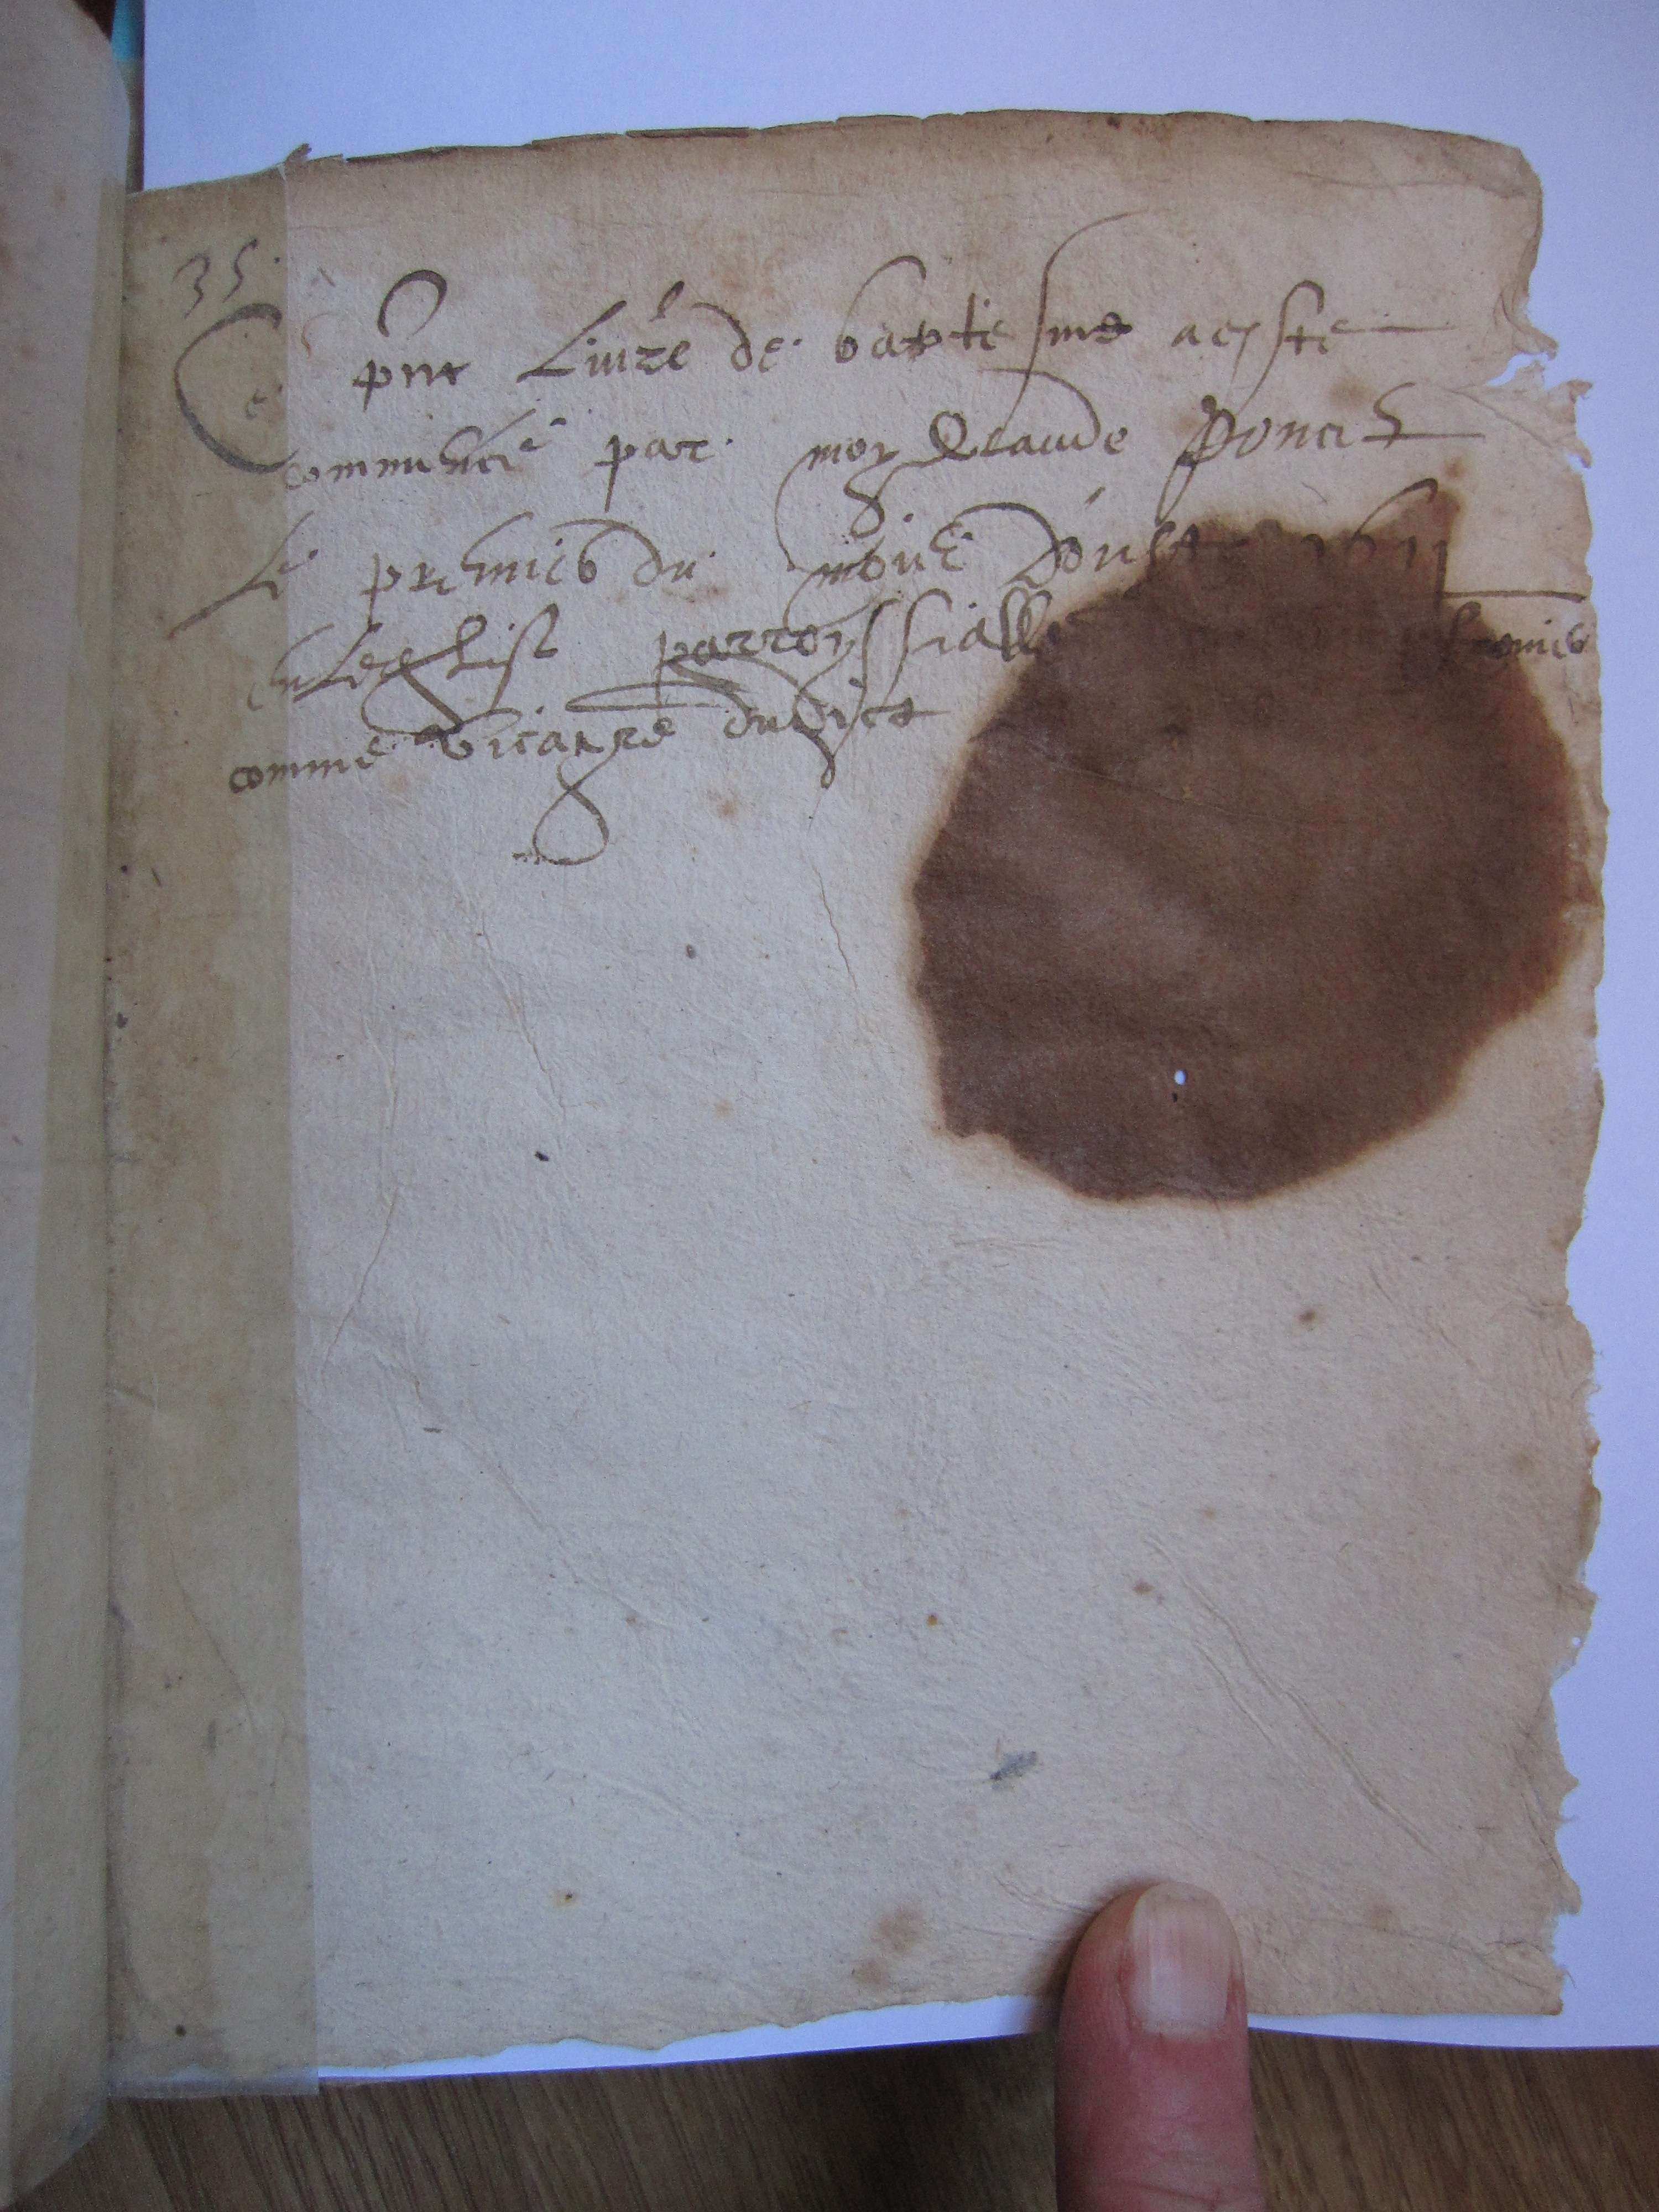 35.
Ce pnt Livre de baptesme a este
commencé par moy Claude Poncet
Le premier du moys d'oust 1611
en leglise parroyssialle
comme vicaire dudict